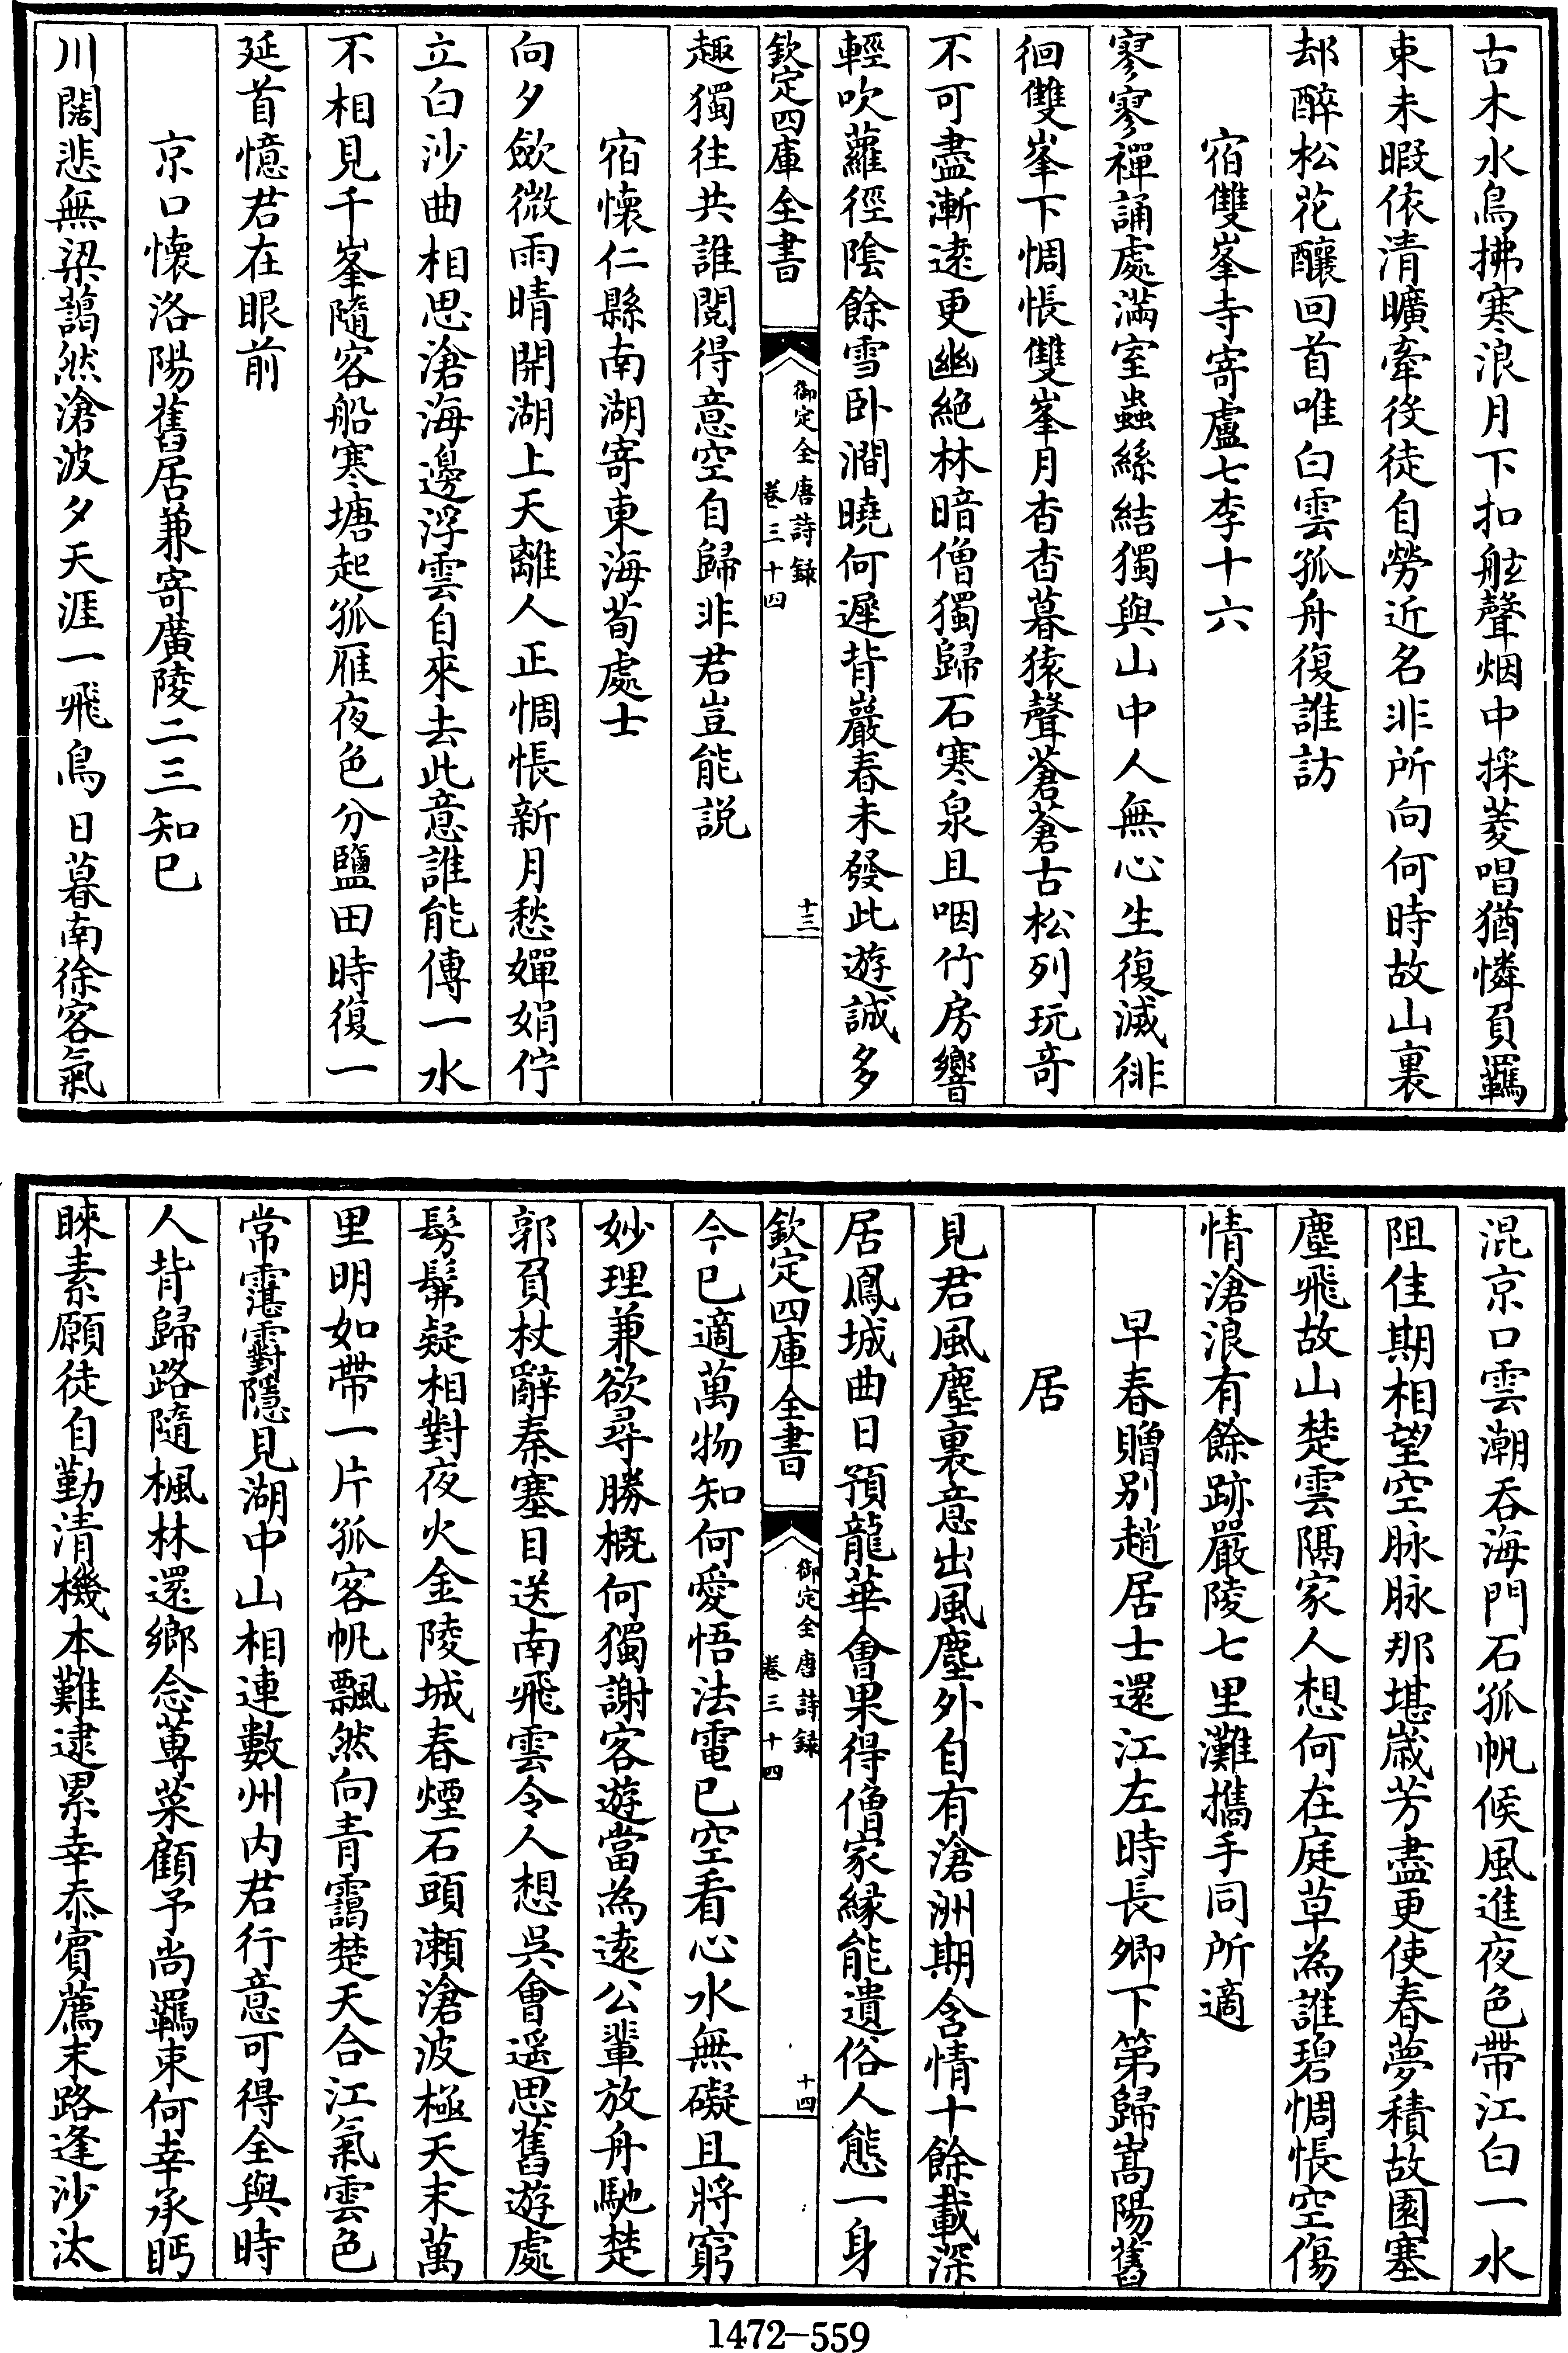 古木水鳥拂寒浪月下扣舷聲烟中採菱唱猶憐負羈
束未暇依清曠牽役徒自勞近名非所向何時故山裏
却醉松花釀回首唯白雲孤舟復誰訪
宿雙峯寺寄盧七李十六
寥寥禪誦處滿室蟲絲結獨與山中人無心生復滅徘
徊雙峯下惆悵雙峯月杳杳暮猿聲蒼蒼古松列玩奇
不可盡漸逺更幽絶林暗僧獨歸石寒泉且咽竹房響
輕吹蘿徑陰餘雪卧澗曉何遲背巖春未發此遊誠多
欽定四庫全書
御定全唐詩録
卷三十四
十三
趣獨徃共誰閱得意空自歸非君豈能説
宿懷仁縣南湖寄東海荀處士
向夕歛微雨晴開湖上天離人正惆悵新月愁嬋娟佇
立白沙曲相思滄海邊浮雲自來去此意誰能傳一水
不相見千峯隨客船寒塘起孤雁夜色分鹽田時復一
延首憶君在眼前
京口懷洛陽舊居兼寄廣陵二三知已
川闊悲無梁藹然滄波夕天涯一飛鳥日暮南徐客氣
混京口雲潮吞海門石孤帆候風進夜色帶江白一水
阻佳期相望空脉脉那堪嵗芳盡更使春夢積故園塞
塵飛故山楚雲隔家人想何在庭草為誰碧惆悵空傷
情滄浪有餘跡嚴陵七里灘攜手同所適
早春贈别趙居士還江左時長卿下第歸嵩陽舊
居
見君風塵裏意出風塵外自有滄洲期含情十餘載深
居鳳城曲日預龍華會果得僧家縁能遺俗人態一身
欽定四庫全書
御定全唐詩録
卷三十四
十四
今已適萬物知何愛悟法電已空看心水無礙且將窮
妙理兼欲尋勝概何獨謝客遊當為逺公輩放舟馳楚
郭負杖辭秦塞目送南飛雲令人想吳會遥思舊遊處
髣髴疑相對夜火金陵城春煙石頭瀬滄波極天末萬
里明如帶一片孤客帆飄然向青靄楚天合江氣雲色
常霮䨴隱見湖中山相連數州内君行意可得全與時
人背歸路隨楓林還鄉念蓴菜顧予尚羈束何幸承眄
睞素願徒自勤清機本難逮累幸忝賓薦末路逢沙汰
1472—559